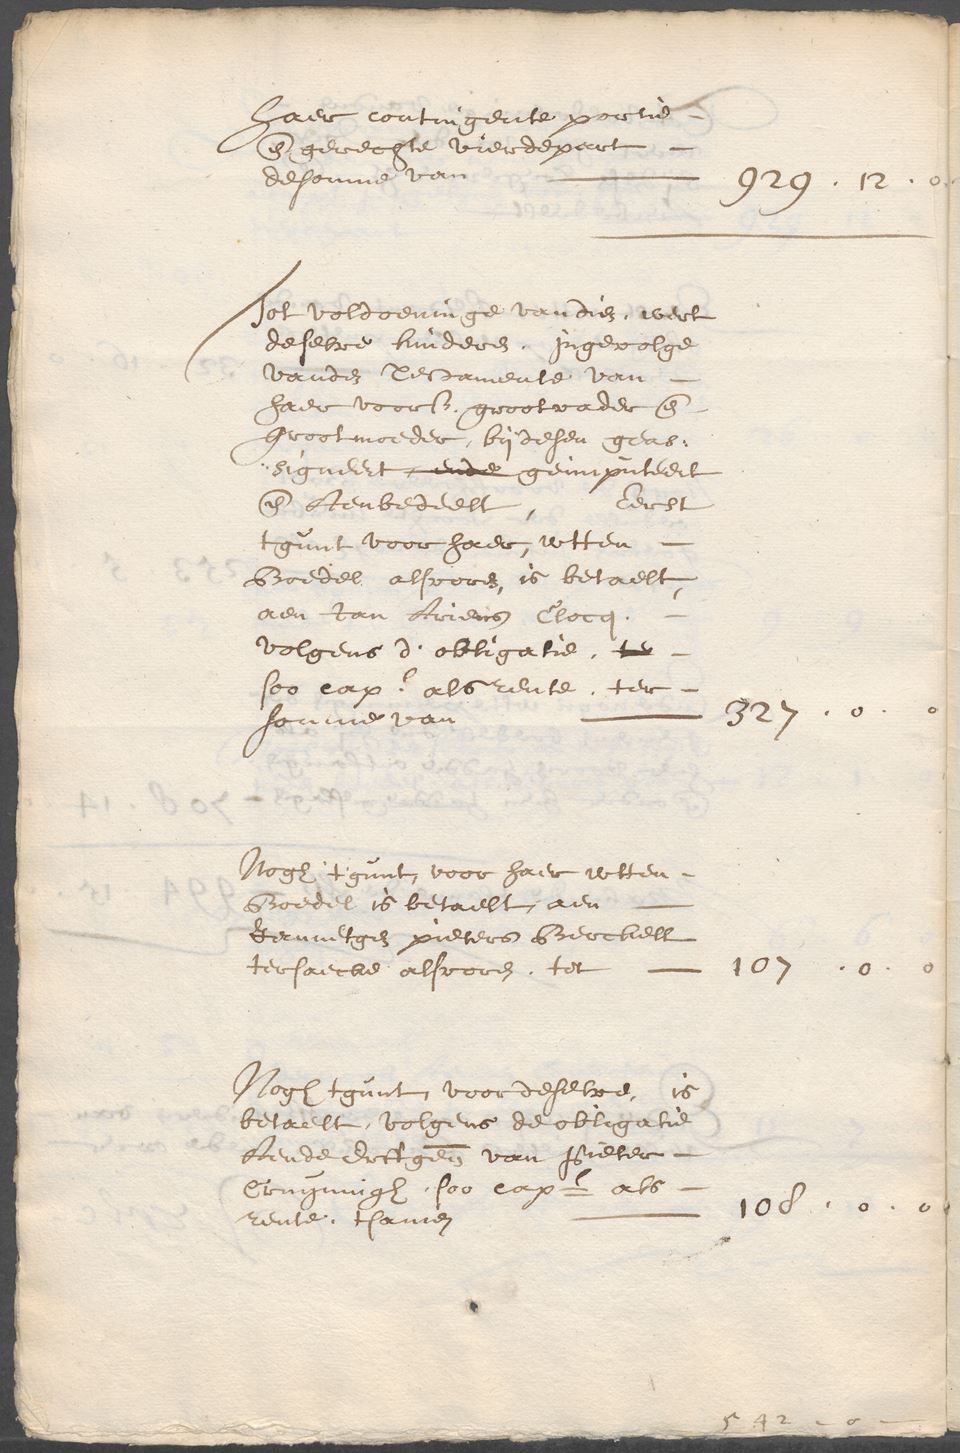 haer contingente portie -
en gerechte vierdepart -
de somme van 929 . 12 . 0
Tot voldoeninge van dien . wert
deselve kinderen . Ingevolge
vanden Testamente van -
haer voors. grootvader en -
Grootmoeder, bij desen geas:
:signeert ende geimputeert
en Aenbedeelt, Eerst
tgunt voor haer, wtten -
Boedel alvooren, is betaelt,
aen Jan Ariens Clocq. -
volgens d' obligatie . ter -
soo capl. als rente . ter -
somme van 327 . 0 . 0
Nogh tgunt, voor haer wtten -
Boedel is betaelt, aen
Jannetgen pieters Berckell
ter saecke alvooren . tot 107 . 0 . 0
Nogh tgunt, voor deselve, is
betaelt, volgens de obligatie
Aende van Pieter -
soo capl. als -
rente . tsamen 108 . 0 . 0
542 - 0 -